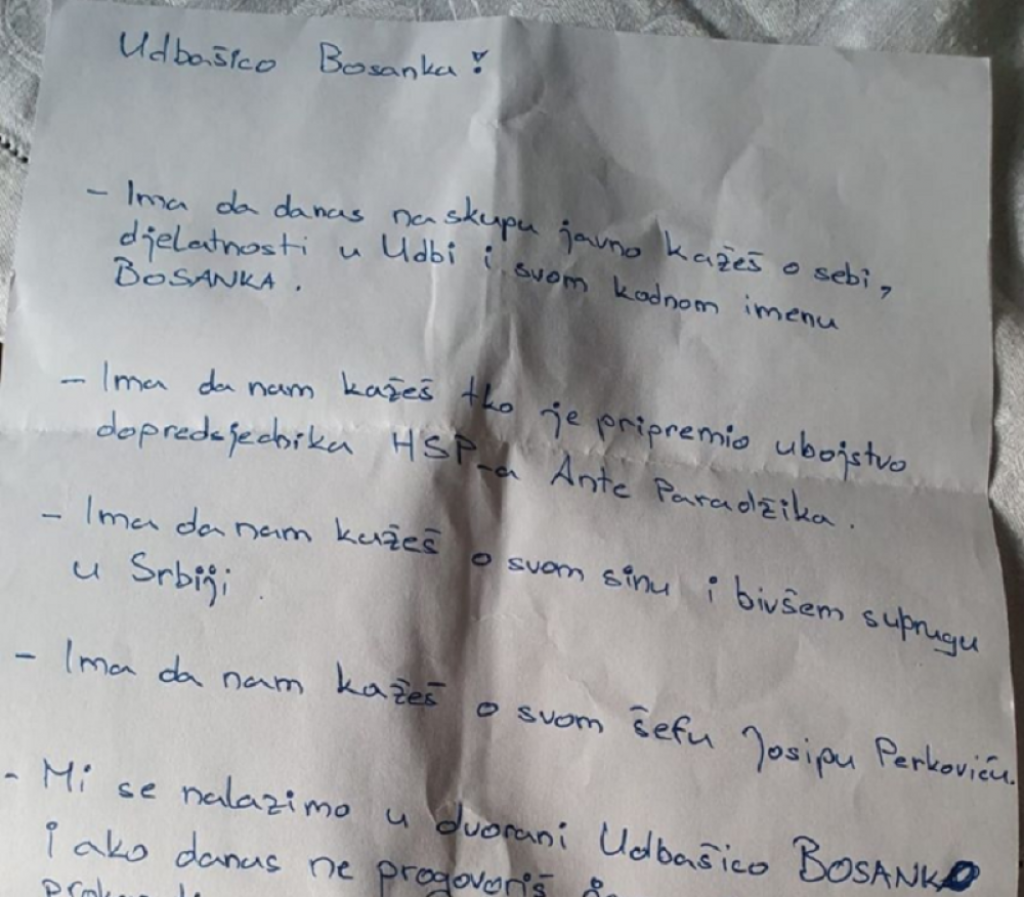 Udbašico Bosanka!
- Ima da danas na skupu javno kažeš o sebi,
djelatnosti u Udbi i svom kodnom imenu
BOSANKA.
- Ima da nam kažeš tko je pripremio ubojstvo
dopredsjednika HSP-a Ante Paradžika.
- Ima da nam kažeš o svom sinu i bivšem suprugu
u Srbiji.
- Ima da nam kažeš o svom šefu Josipu Perkoviću.
- Mi se nalazimo u dvorani Udbašico BOSANKO
i ako danas ne progovoriš